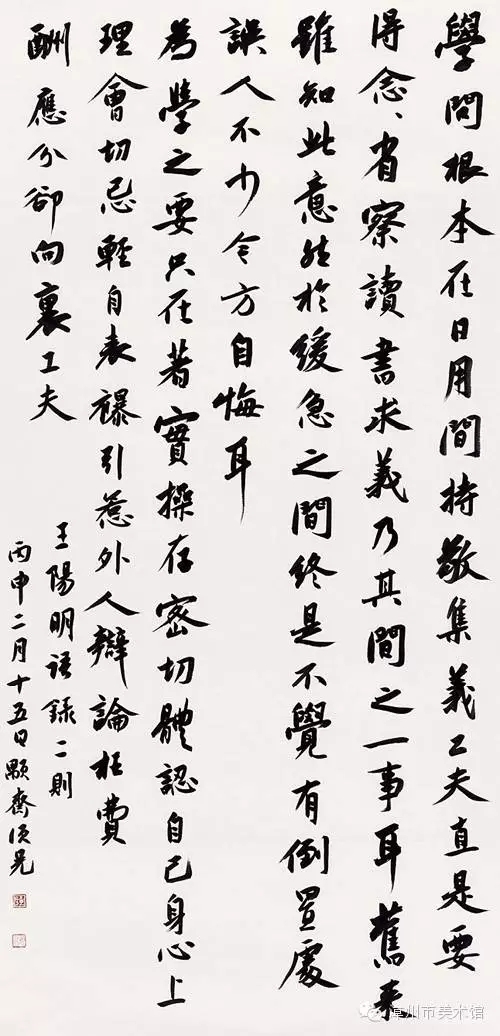 學問根本在日用間持敬集義工夫直是要
得念、省察讀書求義乃其間之一事耳舊來
雖知此意然於緩急之間終是不覺有倒置處
誤人不少今方自悔耳
為學之要只在著實操存密切體認自己身心上
理會切忌輕自表襮引惹外人辯論枉費
酬應分卻向裏工夫
王陽明語錄二則
丙申二月十五日顥齋
漳州市美术馆